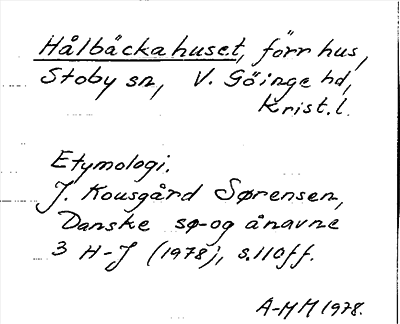 Hålbäckahuset, förr hus,
Stoby sn, V. Göinge hd,
Krist.l.
Etymologi.
J. Kousgård Sørensen,
Danske sø- og ånavne
3 H-J (1978), s.110ff.
A-MM 1978.